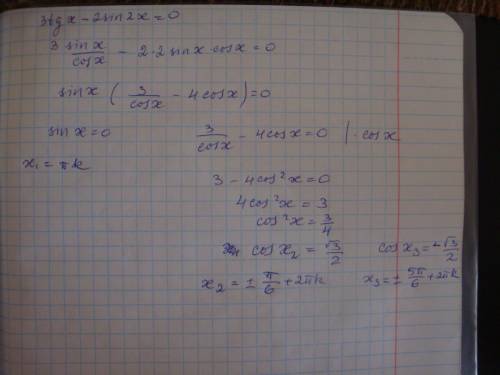 3tg x - 2 sin 2x = 0
3 sin x / cos x - 2·2 sin x · cos x = 0
sin x ( 3 / cos x - 4 cos x ) = 0
sin x = 0    3 / cos x - 4 cos x = 0 | · cos x
x₁ = πk
3 - 4 cos² x = 0
4 cos² x = 3
cos² x = 3/4
cos x₂ = √3/2    cos x₃ = -√3/2
x₂ = ± π/6 + 2πk    x₃ = ± 5π/6 + 2πk